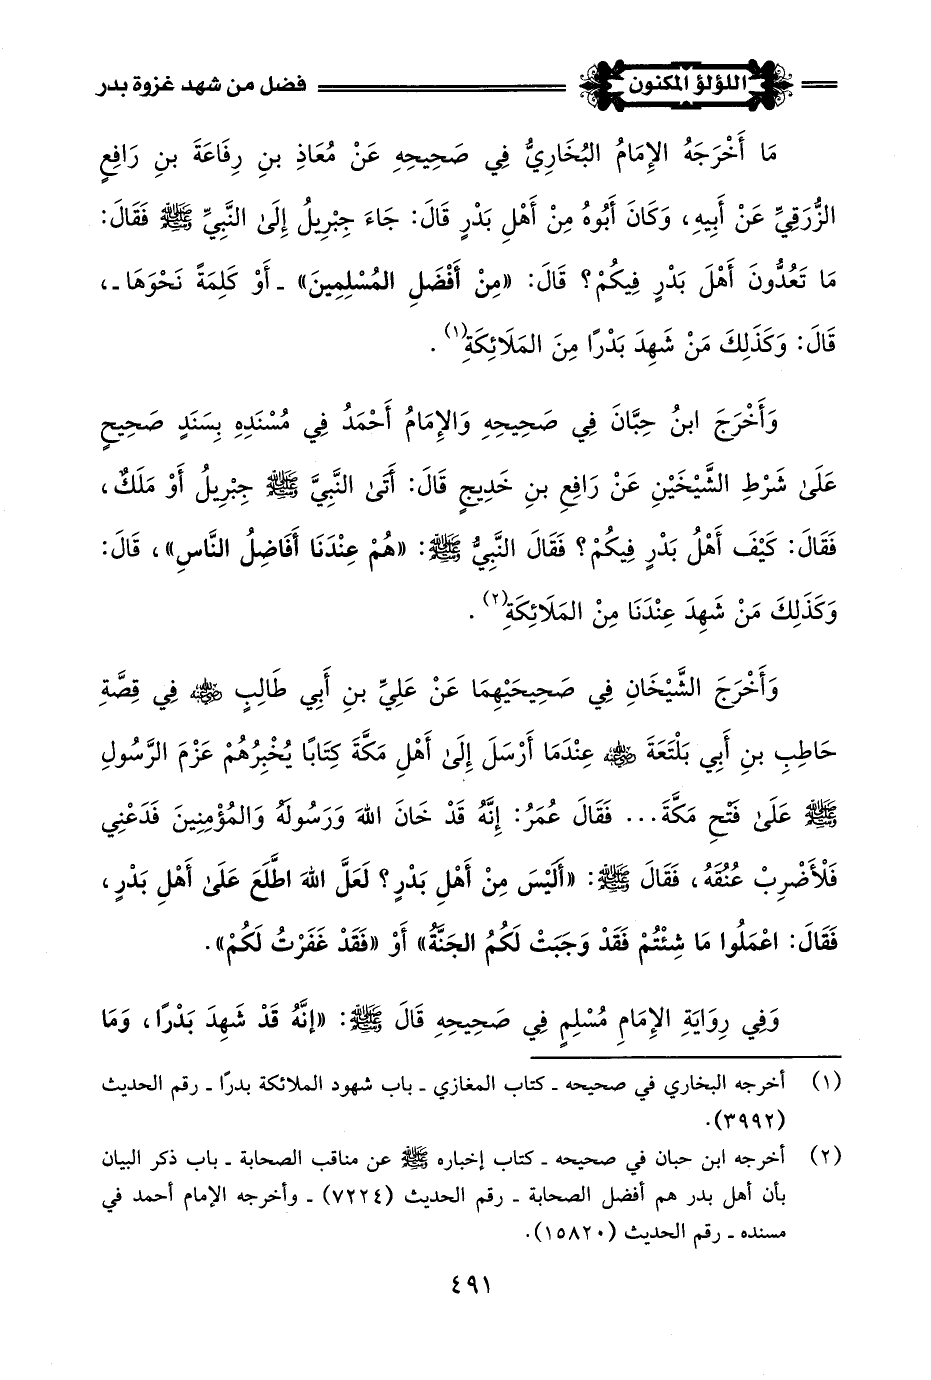 اللؤلؤ المكنون
فضل من شهد غزوة بدر
مَا أَخْرَجَهُ الإِمَامُ البُخَارِيُّ فِي صَحِيحِهِ عَنْ مُعَاذِ بنِ رِفَاعَةَ بنِ رَافِعٍ
الزُّرَقِيِّ عَنْ أَبِيهِ، وَكَانَ أَبُوهُ مِنْ أَهْلِ بَدْرٍ قَالَ: جَاءَ جِبْرِيلُ إِلَىٰ النَّبِيِّ ﷺ فَقَالَ:
مَا تَعُدُّونَ أَهْلَ بَدْرٍ فِيكُمْ؟ قَالَ: «مِنْ أَفْضَلِ المُسْلِمِينَ» ـ أَوْ كَلِمَةً نَحْوَهَا ـ،
قَالَ: وَكَذَلِكَ مَنْ شَهِدَ بَدْرًا مِنَ المَلَائِكَةِ(١).
وَأَخْرَجَ ابنُ حِبَّانَ فِي صَحِيحِهِ وَالإِمَامُ أَحْمَدُ فِي مُسْنَدِهِ بِسَنَدٍ صَحِيحٍ
عَلَىٰ شَرْطِ الشَّيْخَيْنِ عَنْ رَافِعِ بنِ خَدِيجٍ قَالَ: أَتَىٰ النَّبِيَّ ﷺ جِبْرِيلُ أَوْ مَلَكٌ،
فَقَالَ: كَيْفَ أَهْلُ بَدْرٍ فِيكُمْ؟ فَقَالَ النَّبِيُّ ﷺ: «هُمْ عِنْدَنَا أَفَاضِلُ النَّاسِ»، قَالَ:
وَكَذَلِكَ مَنْ شَهِدَ عِنْدَنَا مِنْ المَلَائِكَةِ(٢).
وَأَخْرَجَ الشَّيْخَانِ فِي صَحِيحَيْهِمَا عَنْ عَلِيِّ بنِ أَبِي طَالِبٍ رضي الله عنه فِي قِصَّةِ
حَاطِبِ بنِ أَبِي بَلْتَعَةَ رضي الله عنه عِنْدَمَا أَرْسَلَ إِلَىٰ أَهْلِ مَكَّةَ كِتَابًا يُخْبِرُهُمْ عَزْمَ الرَّسُولِ
ﷺ عَلَىٰ فَتْحِ مَكَّةَ... فَقَالَ عُمَرُ: إِنَّهُ قَدْ خَانَ اللهَ وَرَسُولَهُ وَالمُؤْمِنِينَ فَدَعْنِي
فَلْأَضْرِبْ عُنُقَهُ، فَقَالَ ﷺ: «أَلَيْسَ مِنْ أَهْلِ بَدْرٍ؟ لَعَلَّ اللهَ اطَّلَعَ عَلَىٰ أَهْلِ بَدْرٍ،
فَقَالَ: اعْمَلُوا مَا شِئْتُمْ فَقَدْ وَجَبَتْ لَكُمُ الجَنَّةُ» أَوْ «فَقَدْ غَفَرْتُ لَكُمْ».
وَفِي رِوَايَةِ الإِمَامِ مُسْلِمٍ فِي صَحِيحِهِ قَالَ ﷺ: «إِنَّهُ قَدْ شَهِدَ بَدْرًا، وَمَا
(١) أخرجه البخاري في صحيحه ـ كتاب المغازي ـ باب شهود الملائكة بدرًا ـ رقم الحديث
(٣٩٩٢).
(٢) أخرجه ابن حبان في صحيحه ـ كتاب إخباره ﷺ عن مناقب الصحابة ـ باب ذكر البيان
بأن أهل بدر هم أفضل الصحابة ـ رقم الحديث (٧٢٢٤) ـ وأخرجه الإمام أحمد في
مسنده ـ رقم الحديث (١٥٨٢٠).
٤٩١